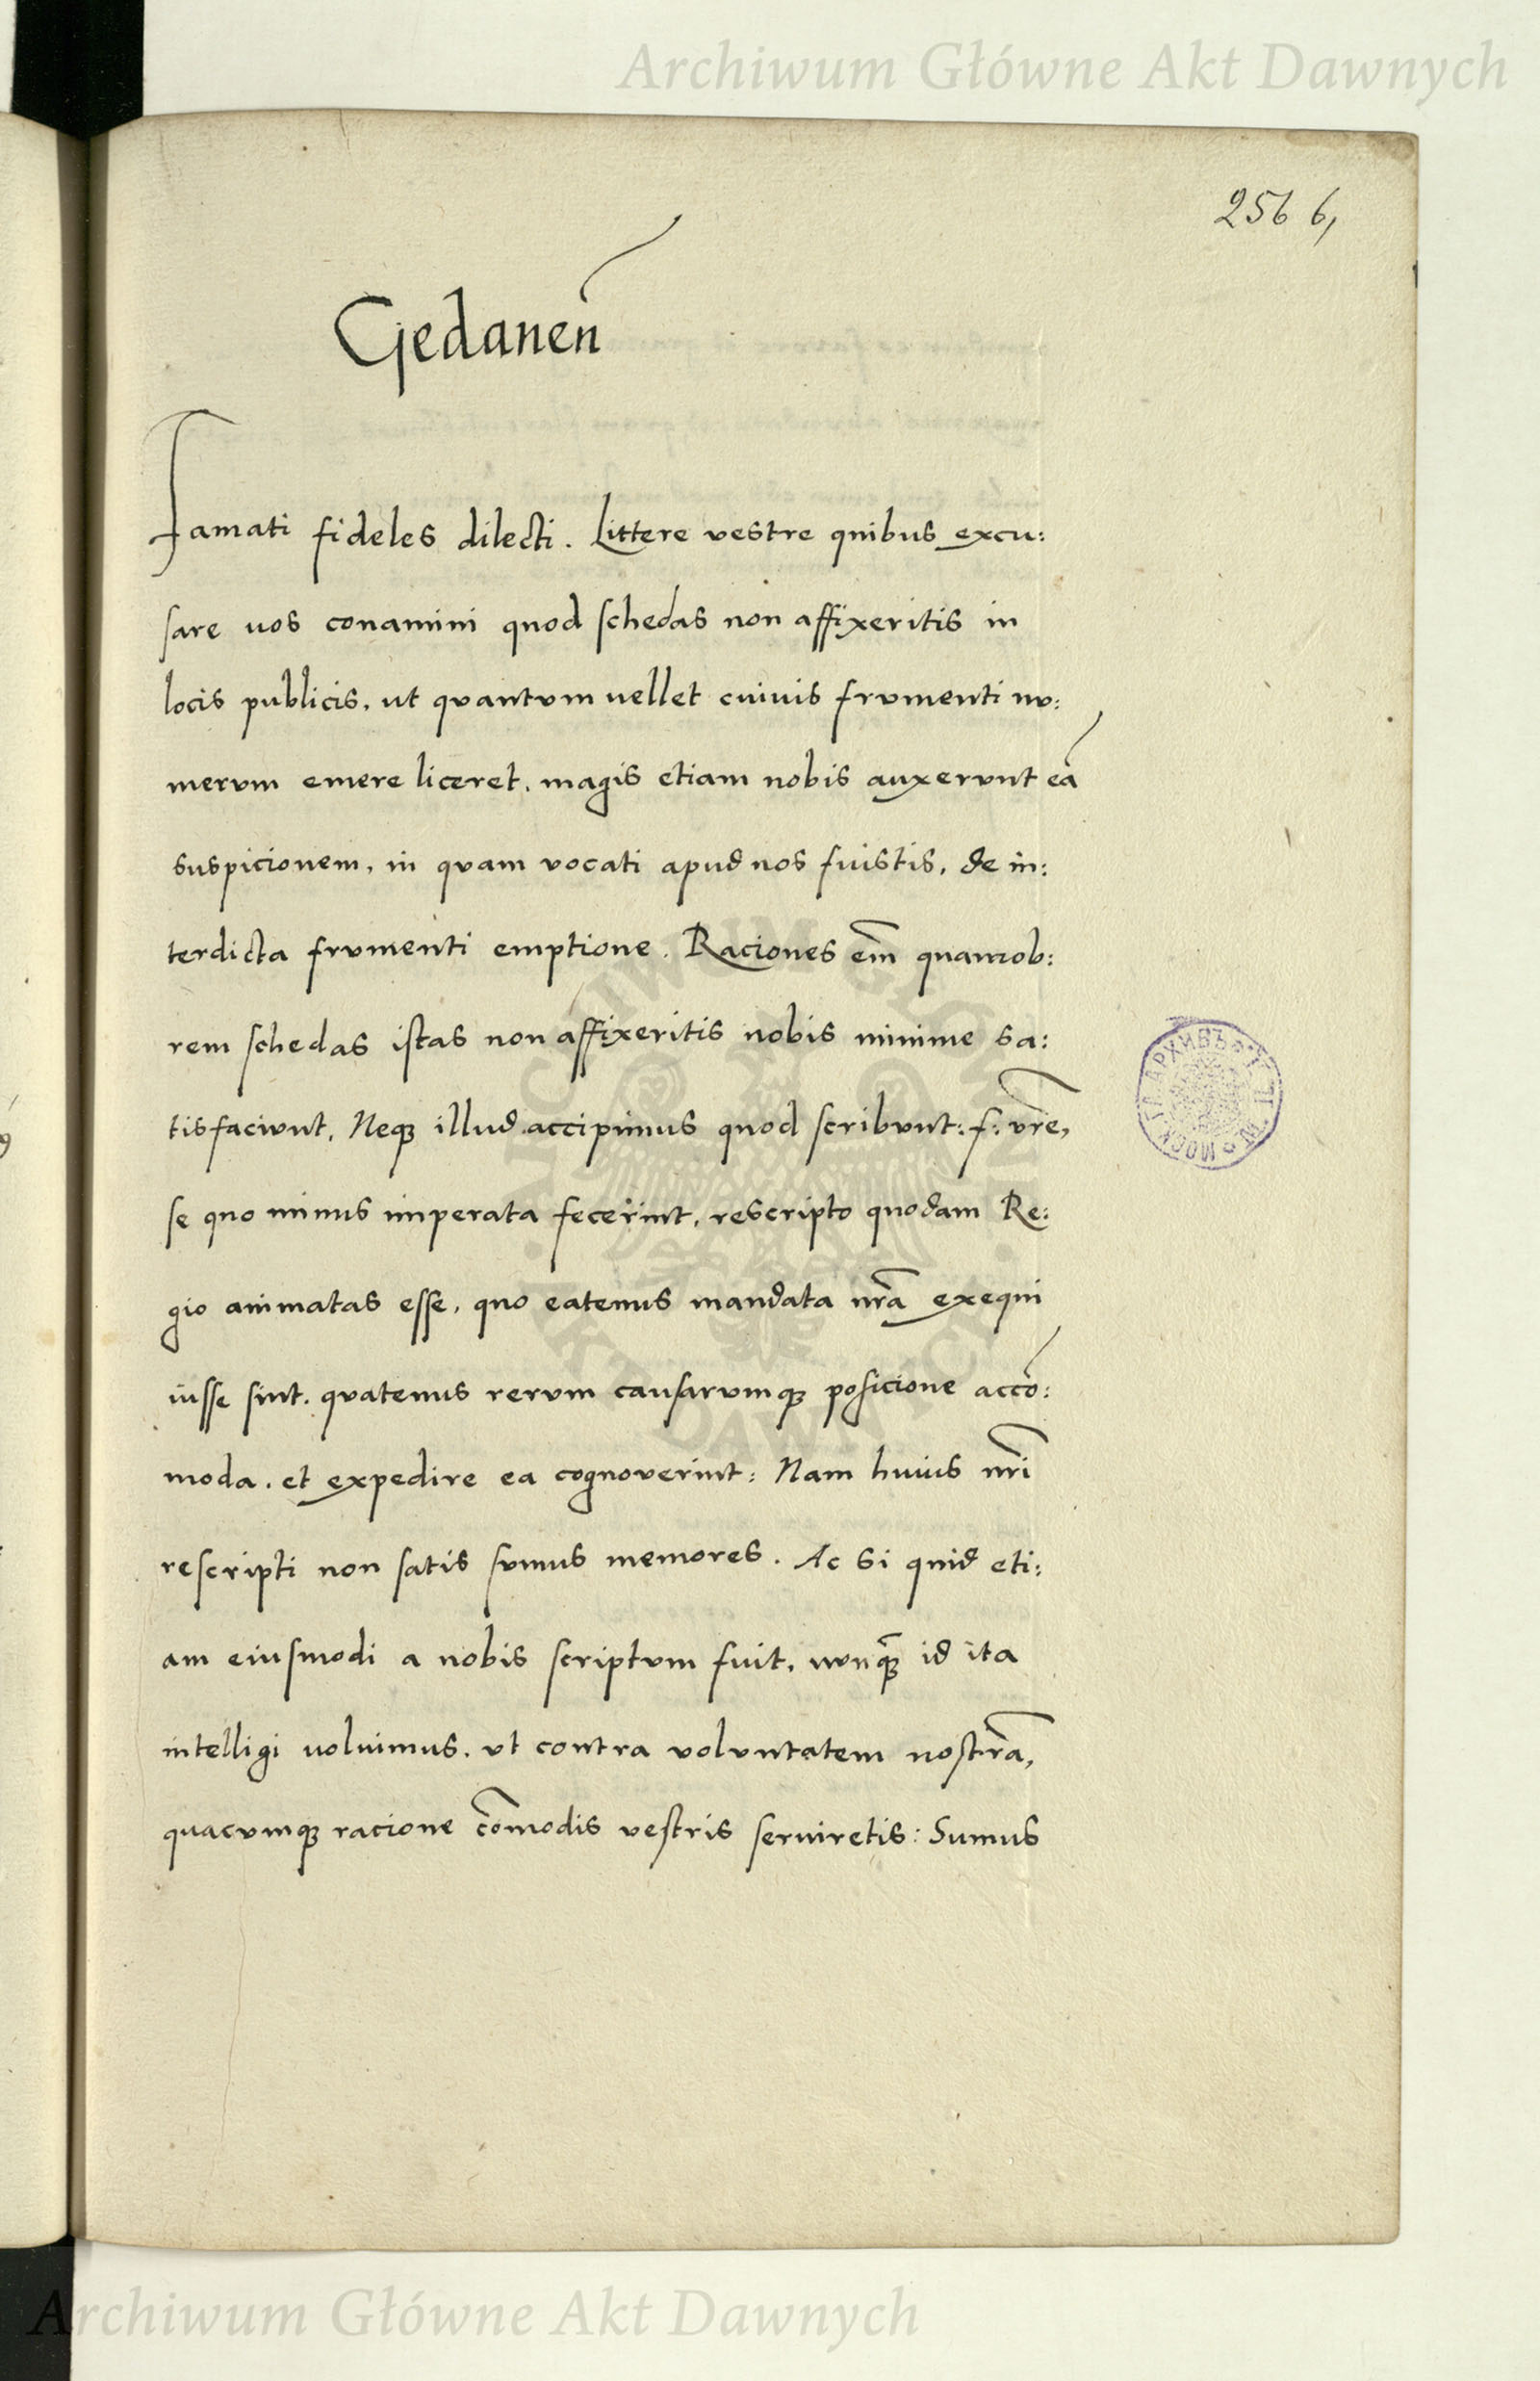 Archiwum Główne Akt Dawnych
256 6,
Gedanen̄
Famati fideles dilecti. Littere vestre quibus excu:
sare uos conamini quod schedas non affixeritis in
locis publicis, ut quantvm uellet cuiuis frvmenti nv:
mervm emere liceret, magis etiam nobis auxervnt eā
suspicionem, in qvam vocati apud nos fuistis, de in:
terdicta frvmenti emptione. Raciones em̄ quamob:
rem schedas istas non affixeritis nobis minime sa:
tisfacivnt, Neqꝫ illud accipimus quod scribvnt: f: vr̄e,
se quo minus imperata fecerint, rescripto quodam Re:
gio animatas esse, quo eatenus mandata nr̄a exequi
iusse sint. qvatenus rervm causarvmqꝫ posicione accō:
moda, et expedire ea cognoverint: Nam huius nr̄i
rescripti non satis svmus memores. Ac si quid eti:
am eiusmodi a nobis scriptvm fuit, nvnqꝫ̄ id ita
intelligi uoluimus, vt contra volvntatem nostrā,
quacvmqꝫ racione cōmodis vestris seruiretis: Sumus
Archiwum Główne Akt Dawnych